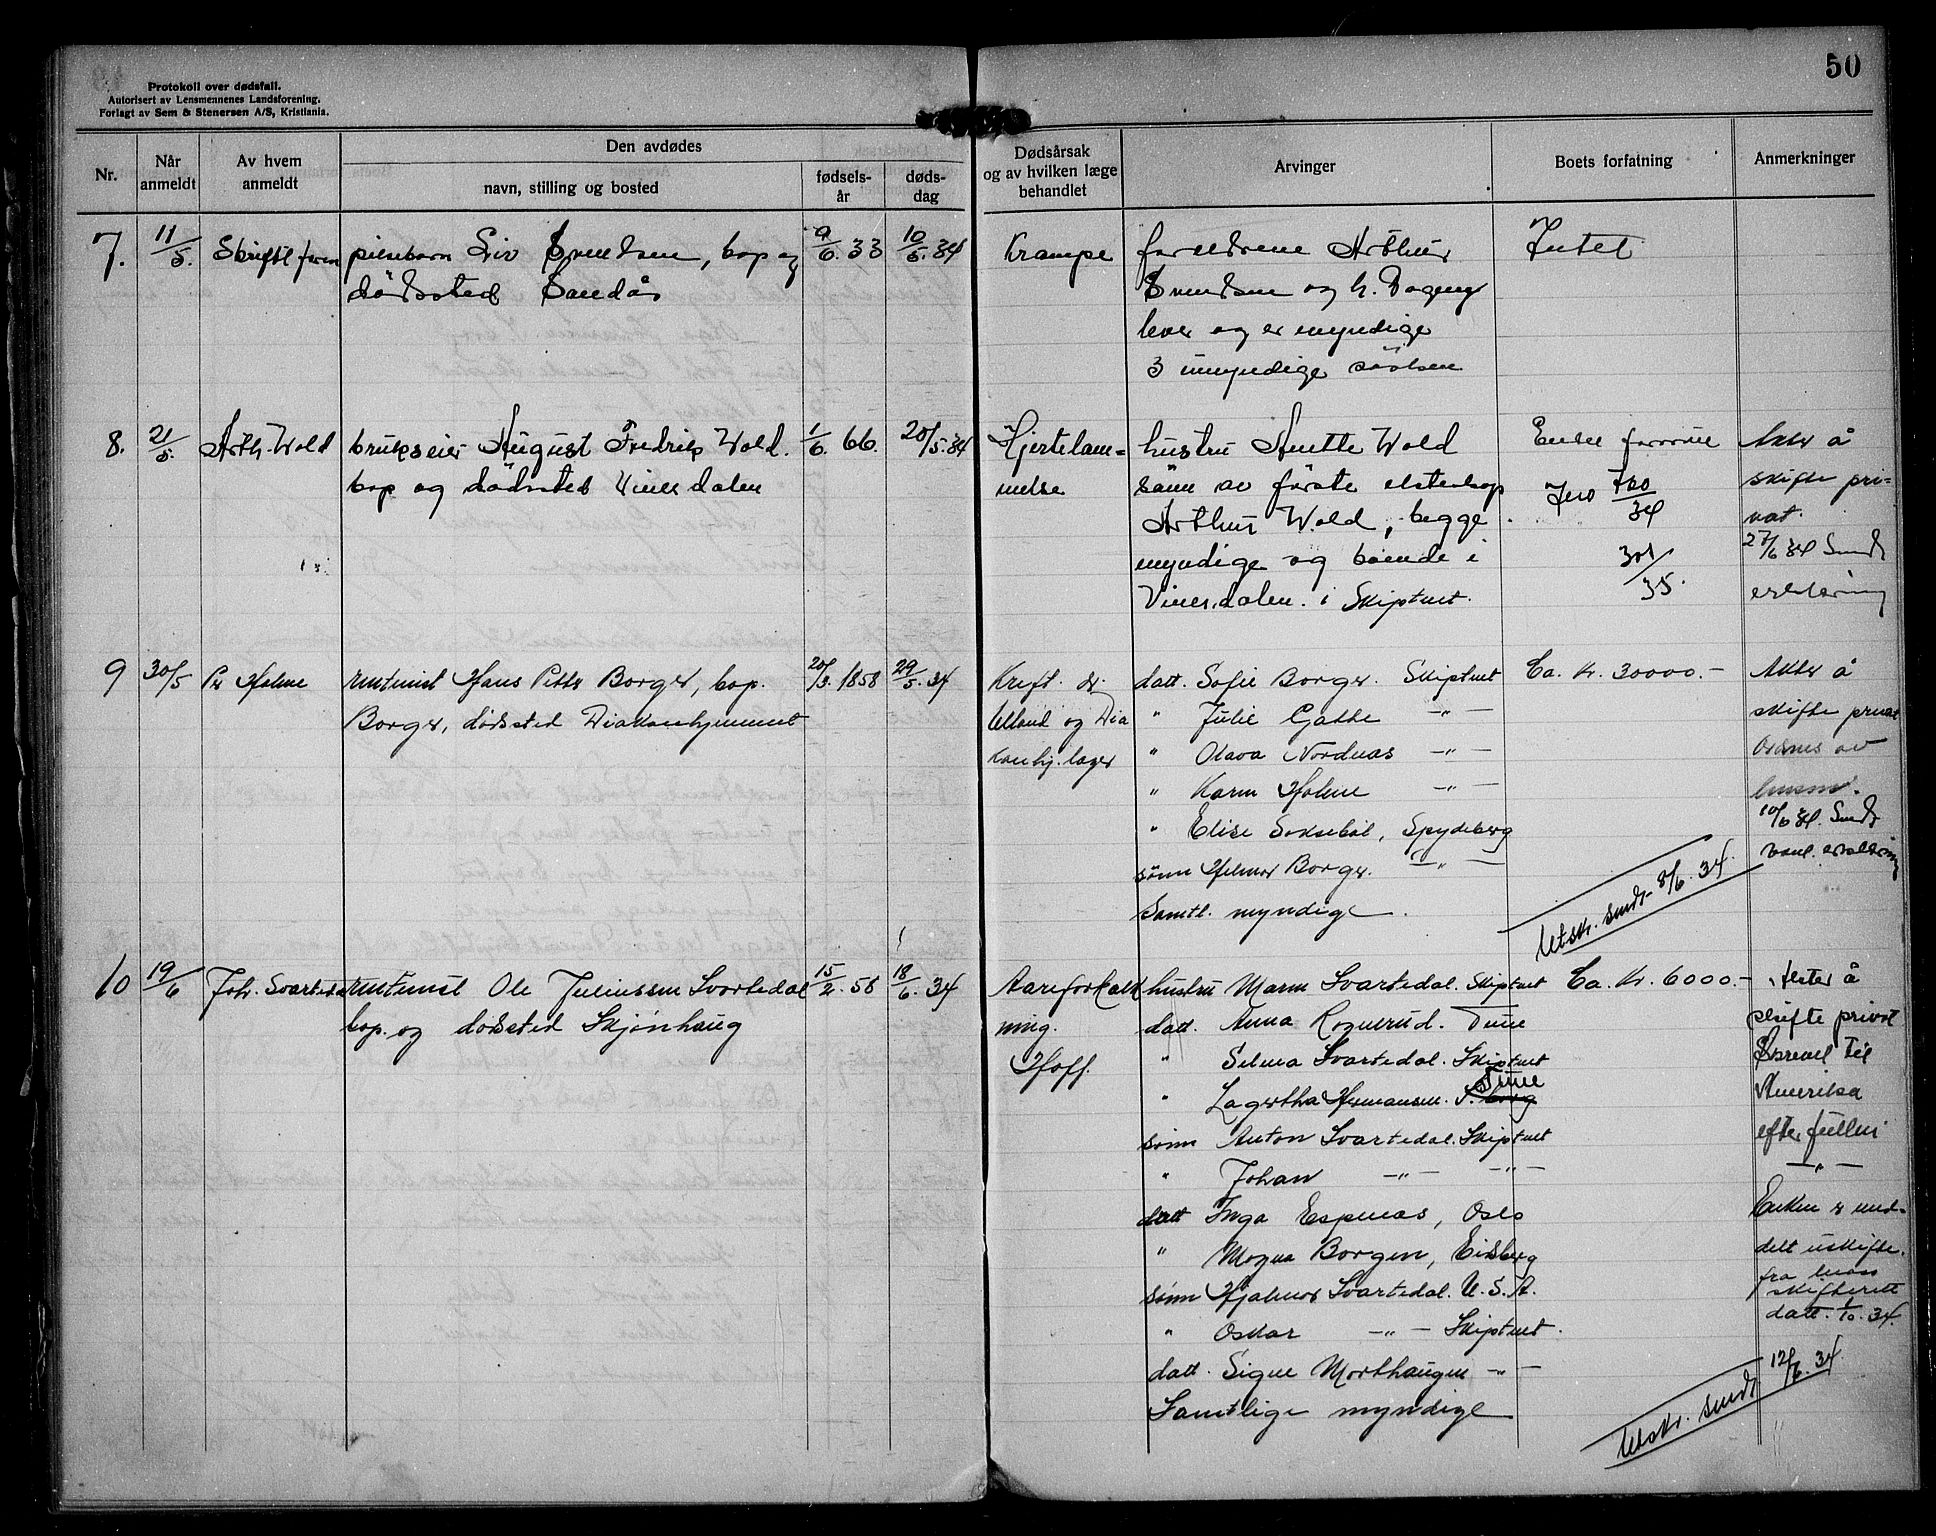 50
Protokoll over dødsfall.
Autorisert av Lensmennenes Landsforening.
Forlagt av Sem & Stenersen A/S, Kristiania.
Nr.
Når anmeldt
Av hvem anmeldt
Den avdødes
navn, stilling og bosted
fødsels-år
døds-dag
Dødsårsak og av hvilken læge behandlet
Arvinger
Boets forfatning
Anmerkninger
7. 11/5. Skriftl. pikebarn Liv Svendsen, bop og 9/6. 33 10/5. 34
dødssted Sandås
Krampe
foreldrene Arthur
Svendsen og h. Dagny
lever og er myndige
3 umyndige søsken
Intet
8. 21/5. Arth. Wold brukseier August Fredrik Wold. 1/6. 66. 20/5. 34
bop og dødssted Vinesdalen
Hjertelam=
melse
hustru Anette Wold
sønn av første ekteskap
Arthur Wold, begge
myndige og boende i
Vinesdalen. i Skiptvet.
34
301/35.
Akter å
skifte pri-
vat.
27/6 34 Sendt
erklæring
9 30/5 Per Holme rentenist Hans Petter Borger, bop. 20/3. 1858 29/5. 34
Borger, dødssted Diakonhjemmet
Kreft. dr.
Ulland og Dia
konhj. læger
datt. Sofie Borger. Skiptvet
" Julie Gatte —"—
" Olava Nordnas —"—
" Karen Holme —"—
" Elise Soksebøl, Spydeberg
sønn Helmer Borger. —"—
Samtl. myndige.
Ca. Kr. 30000.-
Akter å
skifte privat
Ordnes av
lensm.
10/6 34. Sendt
vanl. erklæring
Utskr. sendt 8/6. 34.
10 19/6 Joh. Svartedal rentenist Ole Juliussen Svartedal 15/2. 58 18/6. 34
bop. og dødssted Skjønhaug
Aareforkalk
ning.
Hoff.
hustru Maren Svartedal. Skiptvet
datt. Anna Rognerud. Tune
" Selma Svartedal. Skiptvet
Tune
" Lagertha Hermansen. S.borg
sønn Anton Svartedal. Skiptvet
" Johan —"— —"—
datt Inga Espenas, Oslo
" Magna Borgen, Eidsberg
sønn Hjalmar Svartedal. U.S.A.
" Oskar —"— Skiptvet.
datt. Signe Morthaugen —"—
Samtlige myndige
Ca. Kr. 6000.-
Akter å
skifte privat
Skrevet til
Amerika
efter fullm
—"—
Enken er med-
delt uskifte.
fra Moss
skifterett
datt. 1/10. 34.
Utskr. sendt 12/6. 34.